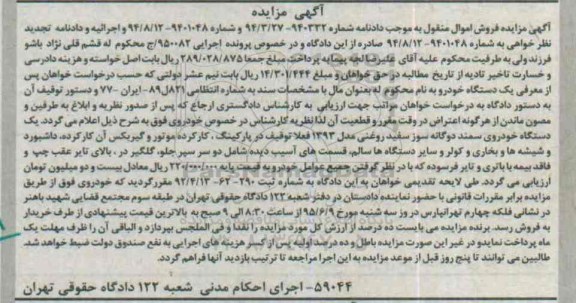 آگهی مزایده
آگهی مزایده فروش اموال منقول به موجب دادنامه شماره ۹۴۰۳۳۲- ۹۴/۳/۲۷ و شماره ۹۴۰۱۰۴۸- ۹۴/۸/۱۲ و اجرائیه و دادنامه تجدید
نظر خواهی به شماره ۹۴۰۱۰۴۸- ۹۴/۸/۱۲ صادره از این دادگاه و در خصوص پرونده اجرایی ۹۵۰۰۸۲/ج محکوم له قشم قلی نژاد باشو
فرزند ولی به طرفیت محکوم علیه آقای علیرضا لعبه به پرداخت مبلغ جمعا ۲۸۹/۰۲۸/۸۷۵ ریال بابت اصل خواسته و هزینه دادرسی
و خسارت تاخیر تادیه از تاریخ مطالبه در حق خواهان و مبلغ ۱۴/۳۰۱/۴۴۴ ریال بابت نیم عشر دولتی که حسب درخواست خواهان پس
از معرفی یک دستگاه خودرو به نام محکوم له بعنوان مال با مشخصات سند به شماره انتظامی ۸۲۱ل۸۹- ایران - ۷۷ و دستور توقیف آن
به دستور دادگاه به درخواست خواهان مراتب جهت ارزیابی به کارشناس دادگستری ارجاع که پس از صدور نظریه و ابلاغ به طرفین و
مصون ماندن از هرگونه اعتراض در وقت مقرر و قطعیت آن لذا نظریه کارشناس در خصوص خودروی فوق به شرح ذیل اعلام می گردد. یک
دستگاه خودروی سمند دوگانه سوز سفید روغنی مدل ۱۳۹۳ فعلا توقیف در پارکینگ، کارکرده موتور و گیربکس آن کارکرده، داشبورد
و شیشه ها و بخاری و کولر و سایر دستگاه ها سالم، قسمت های آسیب دیده شامل دو سر سپر جلو، گلگیر در بالای تایر عقب چپ و
فاقد بیمه با باتری و تایر فرسوده که با در نظر گرفتن جمیع عوامل خودرو به قیمت پایه ۲۲۰/۰۰۰/۰۰۰ ریال معادل بیست و دو میلیون تومان
ارزیابی می گردد. طی لایحه تقدیمی خواهان به این دادگاه به شماره ثبت ۲۹۰-۶۳- ۹۲/۴/۱۳ مقرر گردید که خودروی فوق از طریق
مزایده برابر مقررات قانونی با حضور نماینده دادستان در دفتر شعبه ۱۲۲ دادگاه حقوقی تهران در طبقه سوم مجتمع قضایی شهید باهنر
در نشانی فلکه چهارم تهرانپارس در روز سه شنبه مورخ ۹۵/۶/۹ از ساعت ۸:۳۰ الی ۹ صبح به بالاترین قیمت پیشنهادی از طرف خریدار
به فروش رسد. برنده مزایده می بایست ده درصد از ارزش کل مورد مزایده را نقدا و فی المجلس بپردازد و الباقی آن را ظرف مهلت یک
ماه پرداخت نمایدو در غیر این صورت مزایده باطل و ده درصد اولیه پس از کسر هزینه های اجرایی به نفع صندوق دولت ضبط خواهد شد.
طالبین می توانند تا پنج روز قبل از موعد مزایده به این اجرا مراجعه تا ترتیب بازدید آنها فراهم گردد.
۵۹۰۴۴- اجرای احکام مدنی شعبه ۱۲۲ دادگاه حقوقی تهران